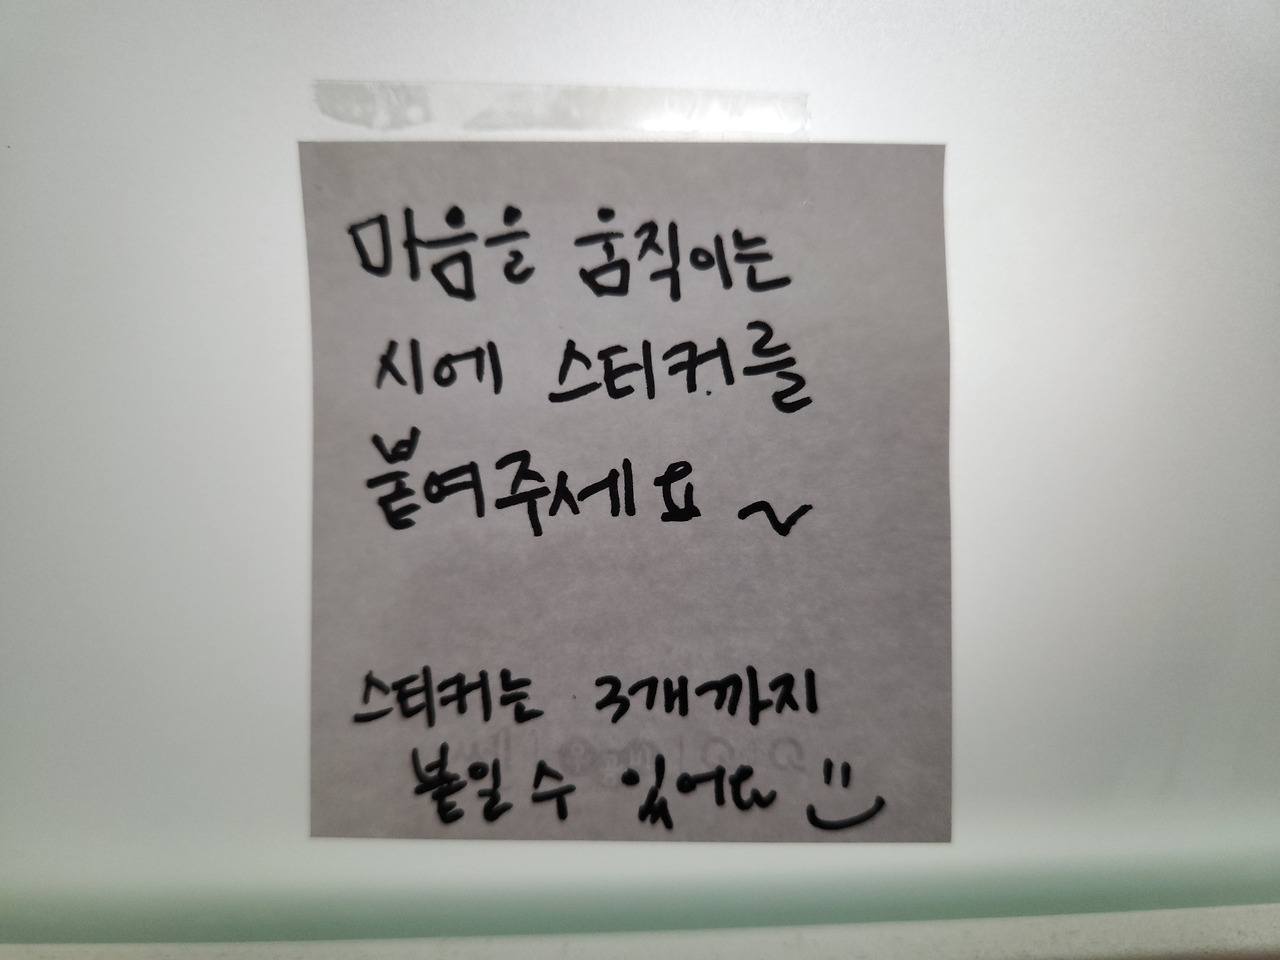 마음을 움직이는
시에 스티커를
붙여주세요~
스티커는 3개까지
붙일 수 있어요